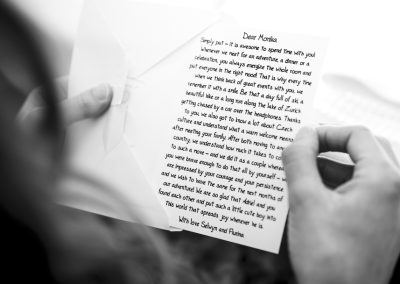 Dear Monika
Simply put - it is awesome to spend time with you!
Whenever we next for an adventure, a dinner or a
celebration, you always energize the whole room and
put everyone in the right mood! That is why every time
when we think back of great events with you, we
remember it with a smile. Be that a day full of ski, a
beautiful hike or a long run along the lake of Zurich
getting chased by a car over the headphones. Thanks
to you, we also got to know a lot about Czech
culture and understand what a warm welcome means
After meeting your family. After both moving to
country, we understood how much it takes to
to such a move - and we did it as a couple where
you were brave enough to do that all by yourself -
are impressed by your courage and your persistence
and we wish to have the same for the next months of
our adventure! We are so glad that Adriel and you
found each other and put such a little cute boy into
this world that spreads joy wherever he is.
With love Selwyn and Flurina